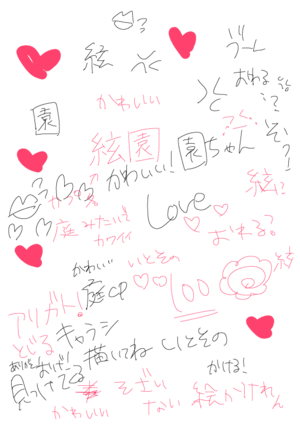 絃
うーん
おわる
園
かわいい
絃園
園ちゃん
かわいい!
絃
Love
庭みたいで
カワイイ
おれる?
かわいい
いとその
庭CP
100
絃
アリガト!
とじる
キャラシ
描いてね
いとその
かける!
見つけてる
そざい
ない
絵かけれん
かわいい